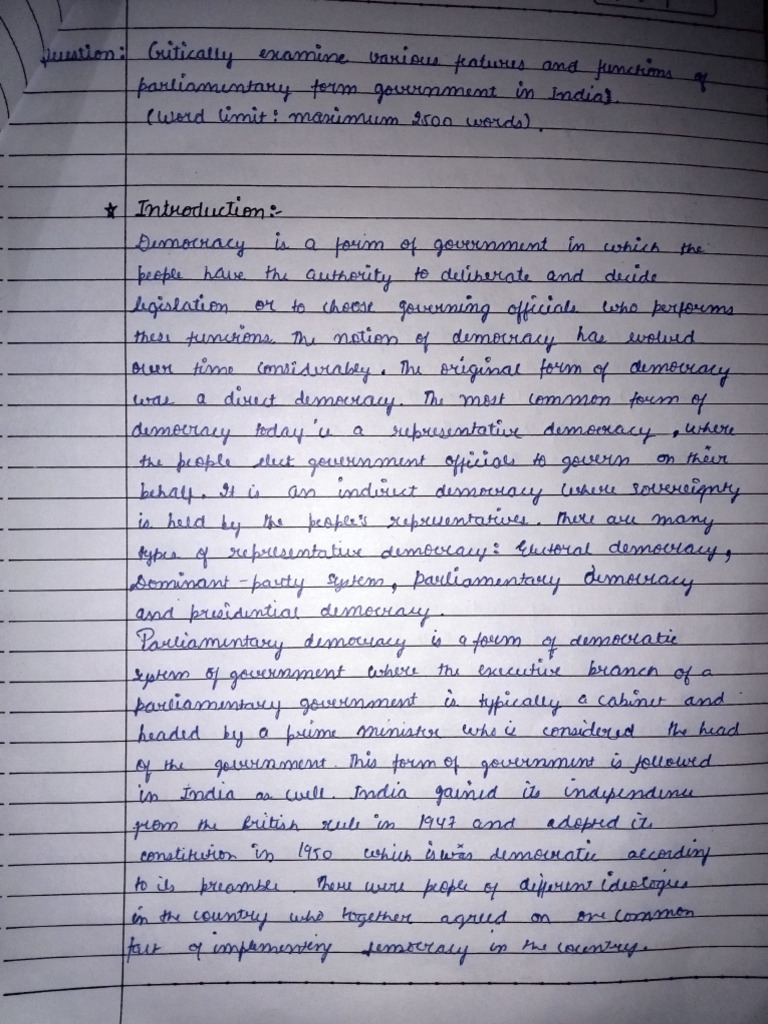 Question: Critically examine various features and functions of
parliamentary form government in India?
(Word limit: maximum 2500 words).
* Introduction:-
Democracy is a form of government in which the
people have the authority to deliberate and decide
legislation or to choose governing officials who performs
these functions. The notion of democracy has evolved
over time considerably. The original form of democracy
was a direct democracy. The most common form of
democracy today is a representative democracy, where
the people elect government officials to govern on their
behalf. It is an indirect democracy where sovereignty
is held by the people's representatives. There are many
types of representative democracy: Electoral democracy,
Dominant-party system, Parliamentary democracy
and presidential democracy.
Parliamentary democracy is a form of democratic
system of government where the executive branch of a
parliamentary government is typically a cabinet and
headed by a prime minister who is considered the head
of the government. This form of government is followed
in India as well. India gained its independence
from the British rule in 1947 and adopted its
constitution in 1950 which was democratic according
to its preamble. There were people of different ideologies
in the country who together agreed on one common
fact of implementing democracy in the country.